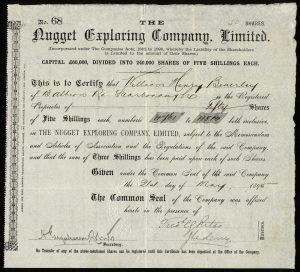 No. 68
THE
SHARES.
Nugget Exploring Company, Limited.
(Incorporated under The Companies Acts, 1862 to 1890, whereby the Liability of the Shareholders
is Limited to the amount of their Shares.)
CAPITAL £60,000, DIVIDED INTO 240,000 SHARES OF FIVE SHILLINGS EACH.
This is to Certify that William Henry Beverley
of Scarborough is the Registered
Proprietor of Fifty Shares
of Five Shillings each, numbered to both inclusive,
in THE NUGGET EXPLORING COMPANY, LIMITED, subject to the Memorandum
and Articles of Association and the Regulations of the said Company,
and that the sum of Three Shillings has been paid upon each of such Shares.
Given under the Common Seal of the said Company
the 21st day of May, 1895
The Common Seal of the Company was affixed
hereto in the presence of
Directors.
Secretary.
No Transfer of any of the above-mentioned shares can be registered until this Certificate has been deposited at the Office of the Company.